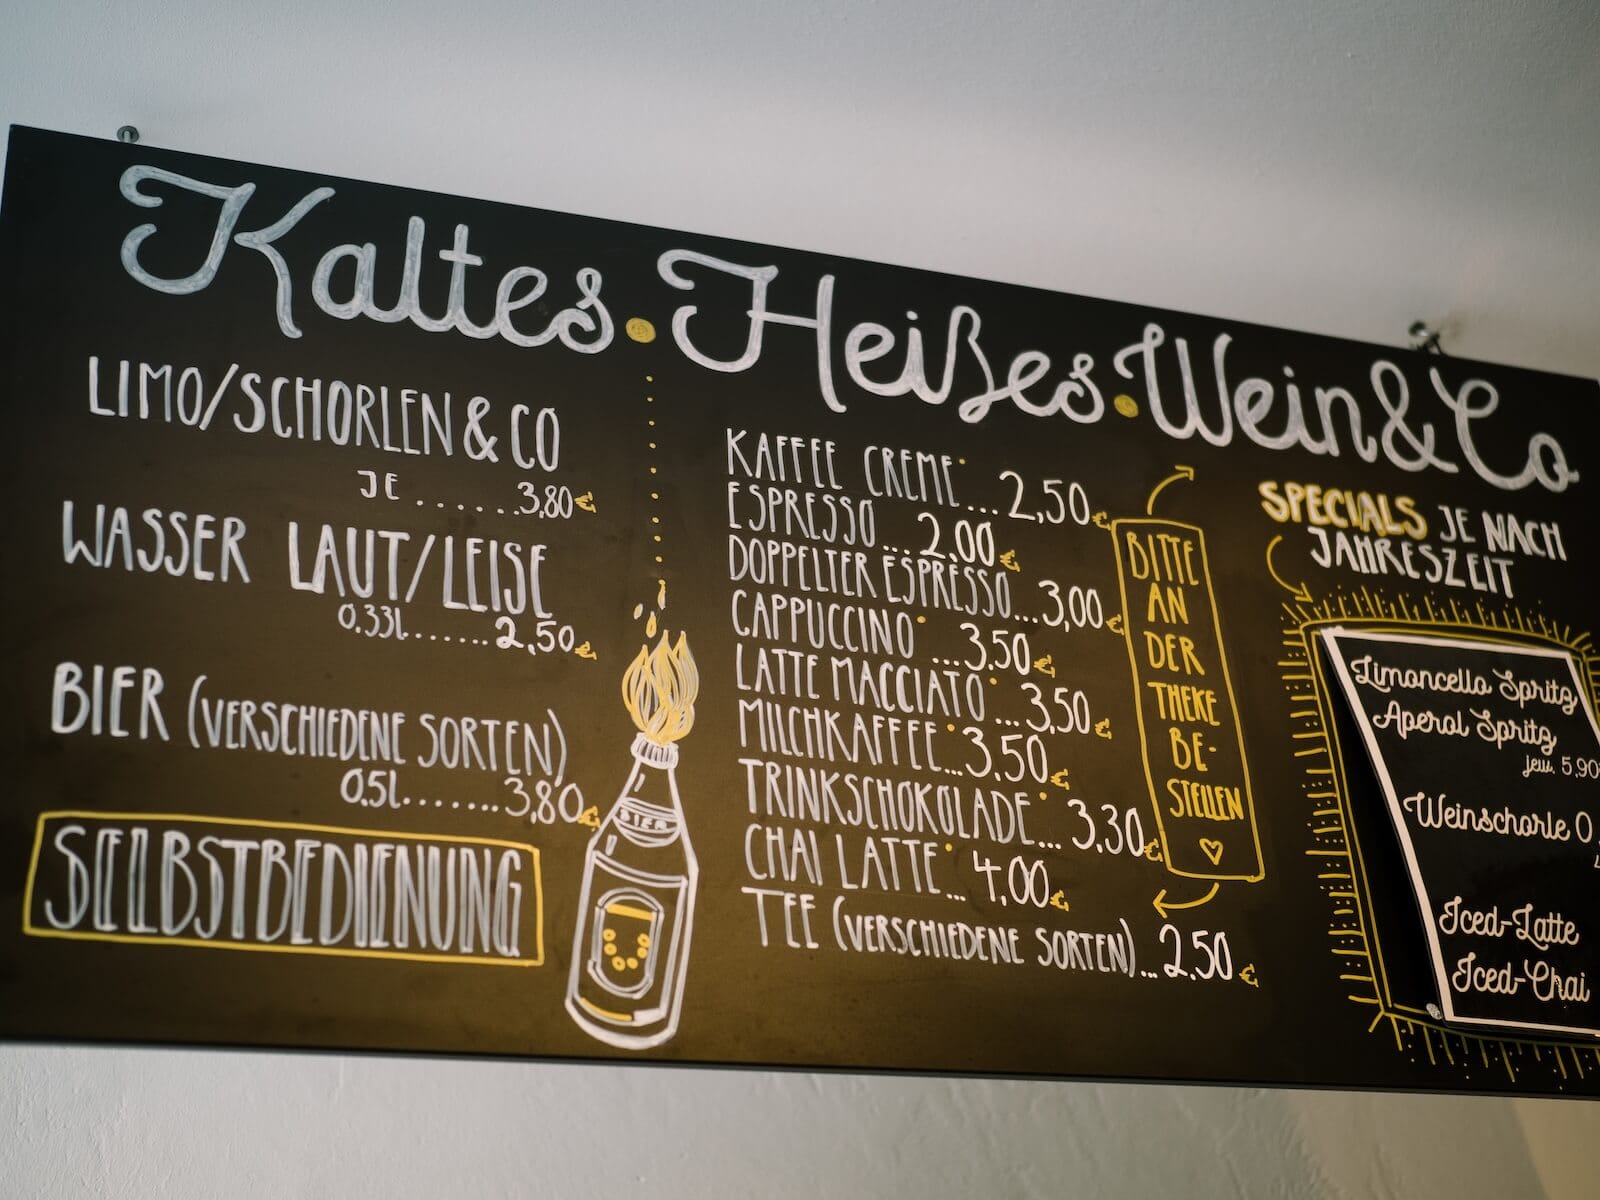 Kaltes · Heißes · Wein & Co
LIMO/SCHORLEN & CO
JE ...... 3,80€
WASSER LAUT/LEISE
0,33l ...... 2,50€
BIER (VERSCHIEDENE SORTEN)
0,5l ....... 3,80€
SELBSTBEDIENUNG
BIER
KAFFEE CREME ... 2,50€
ESPRESSO ... 2,00€
DOPPELTER ESPRESSO ... 3,00€
CAPPUCCINO ... 3,50€
LATTE MACCIATO ... 3,50€
MILCHKAFFEE ... 3,50€
TRINKSCHOKOLADE ... 3,30€
CHAI LATTE ... 4,00€
TEE (VERSCHIEDENE SORTEN) ... 2,50€
BITTE
AN
DER
THEKE
BE-
STELLEN
SPECIALS JE NACH
JAHRESZEIT
Limoncello Spritz
Aperol Spritz
jew. 5,90
Weinschorle 0,
Iced-Latte
Iced-Chai